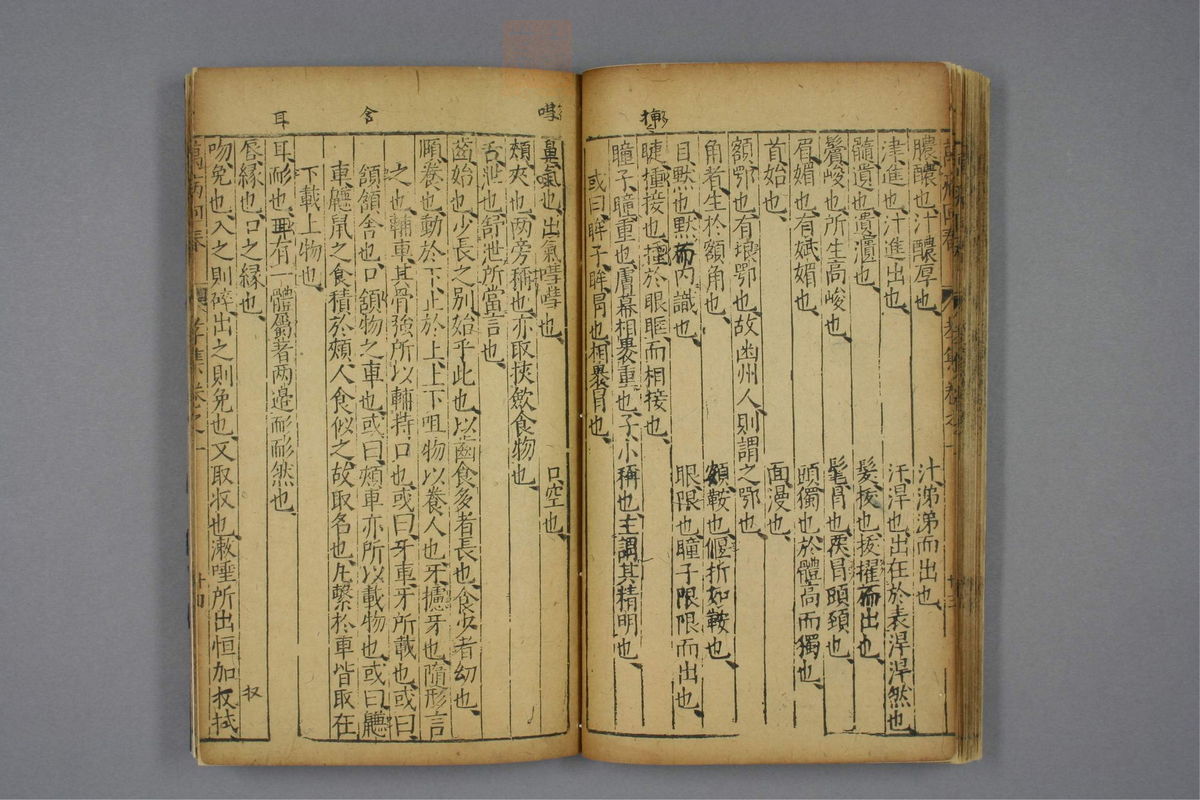 膿醲也汁醲厚也 汁涕涕而出也
津進也汁進出也 汗浑也出在於表浑浑然也
髓遺也遺𣿅也 髮拔也拔擢而出也
鬢峻也所生高峻也 髦冒也覆冒頭頸也
眉媚也有娬媚也 頭獨也於體高而獨也
首始也 面漫也
額鄂也有垠鄂也故幽州人則謂之鄂也
角者生於額角也 頞鞍也偃折如鞍也
目默也默而内識也 眼限也瞳子限限而出也
睫插接也插於眼眶而相接也
瞳子瞳重也膚幕相裹重也子小稱也主謂其精明也
或曰眸子眸冒也相裹冒也
鼻嘒也出氣嘒嘒也 口空也
頰夾也两旁稱也亦取挾歛食物也
舌泄也舒泄所當言也
齒始也少長之别始乎此也以齒食多者長也食少者幼也
頤養也動於下止於上上下咀物以養人也牙攎牙也隨形言
之也輔車其骨强所以輔持口也或曰牙車牙所載也或曰
頷頷含也口頷物之車也或曰頰車亦所以載物也或曰鼸
車鼸鼠之食積於頰人食似之故取名也凡繫於車皆取在
下載上物也
耳耏也耳有一體屬著两邊耏耏然也
唇緣也口之緣也
吻免也入之則碎出之則免也又取収也漱唾所出恒加𢪏拭
萬病回春 孝集卷之一 十四